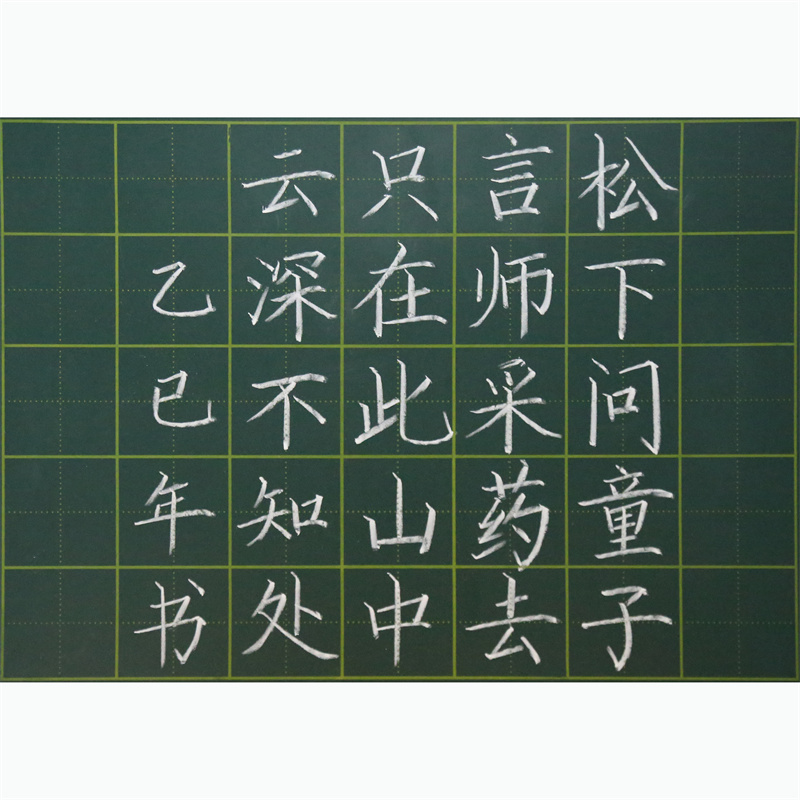 松下问童子
言师采药去
只在此山中
云深不知处
乙巳年书